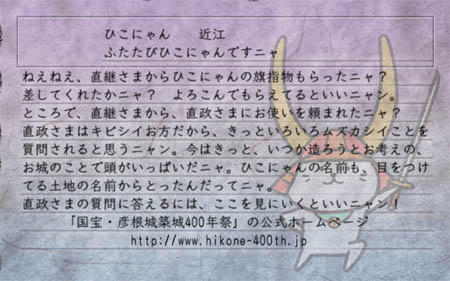 ひこにゃん　　近江
ふたたびひこにゃんですニャ
ねえねえ、直継さまからひこにゃんの旗指物もらったニャ？
差してくれたかニャ？　よろこんでもらえてるといいニャン。
ところで、直継さまから、直政さまにお使いを頼まれたニャ？
直政さまはキビシイお方だから、きっといろいろムズカシイことを
質問されると思うニャン。今はきっと、いつか造ろうとお考えの、
お城のことで頭がいっぱいだニャ。ひこにゃんの名前も、目をつけ
てる土地の名前からとったんだってニャ。
直政さまの質問に答えるには、ここを見にいくといいニャン！
「国宝・彦根城築城400年祭」の公式ホームページ
http://www.hikone-400th.jp/